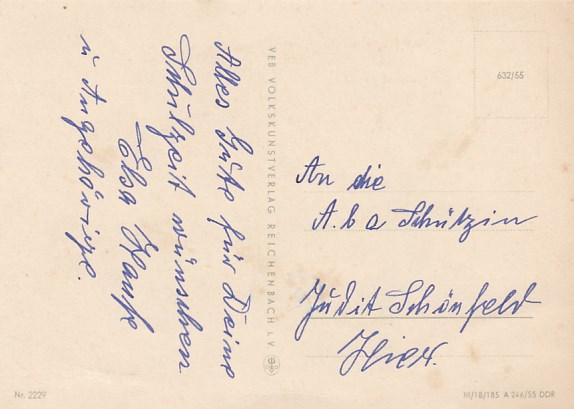 Alles Gute für Deine
Schulzeit wünschen
Elsa
u Angehörige.
VEB VOLKSKUNSTVERLAG REICHENBACH I. V.
632/55
An die
A.b c Schützin
Judit Schönfeld
Hier.
Nr. 2229
III/18/185 A 246/55 DDR